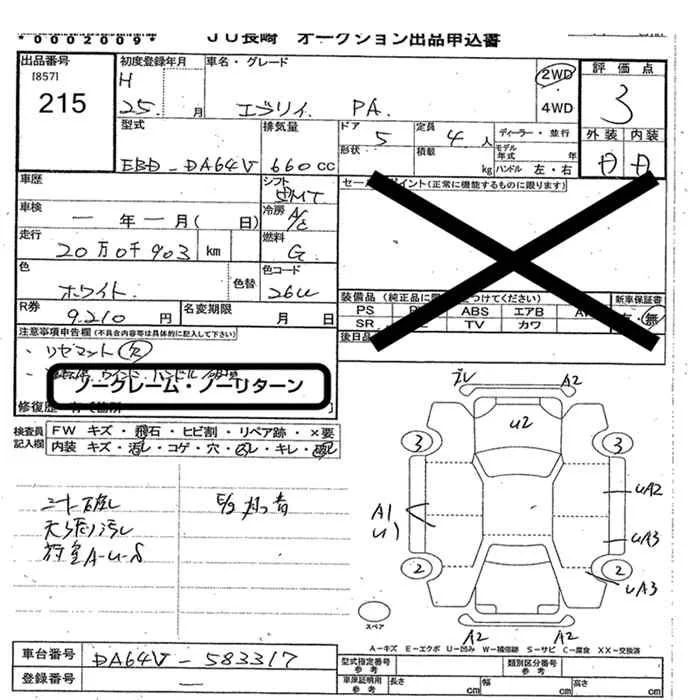 *0002009*
JU長崎 オークション出品申込書
出品番号
[857]
215
初度登録年月
H
25. 月
車名・グレード
エブリイ. PA.
2WD
4WD
評価点
3
外装 内装
型式
EBD-DA64V
排気量
660cc
ドア 5
形状
定員 4人
積載 kg
ディーラー・並行
モデル年式 年
ハンドル 左・右
車歴
シフト
5MT
車検
ー年ー月( 日)
冷房
A/C
走行
20万0千903 km
燃料
G
色
ホワイト.
色替
色コード
26U
R券
9.210 円
名変期限
月 日
イント(正常に機能するものに限ります)
装備品(純正品に つけてください)
新車保証書
PS ABS エアB
SR TV カワ
・無
後日品
注意事項申告欄(不具合内容等は具体的に記入して下さい)
・リセマット 欠
ノークレーム・ノーリターン
検査員記入欄
FW キズ・飛石・ヒビ割・リペア跡・×要
内装 キズ・汚レ・コゲ・穴・凹レ・キレ・
シート破レ
天張り汚レ
荷室A-U-S
E/g
ブレ A2
U2
3 3
A1
U1
UA2
UA3
2 2
UA3
A2 A2
スペア
A-キズ E-エクボ U-凹み W-補修跡 S-サビ C-腐食 XX-交換済
車台番号
DA64V-583317
登録番号
型式指定番号
参考
類別区分番号
参考
車庫証明用
参考
長さ cm 幅 cm 高さ cm